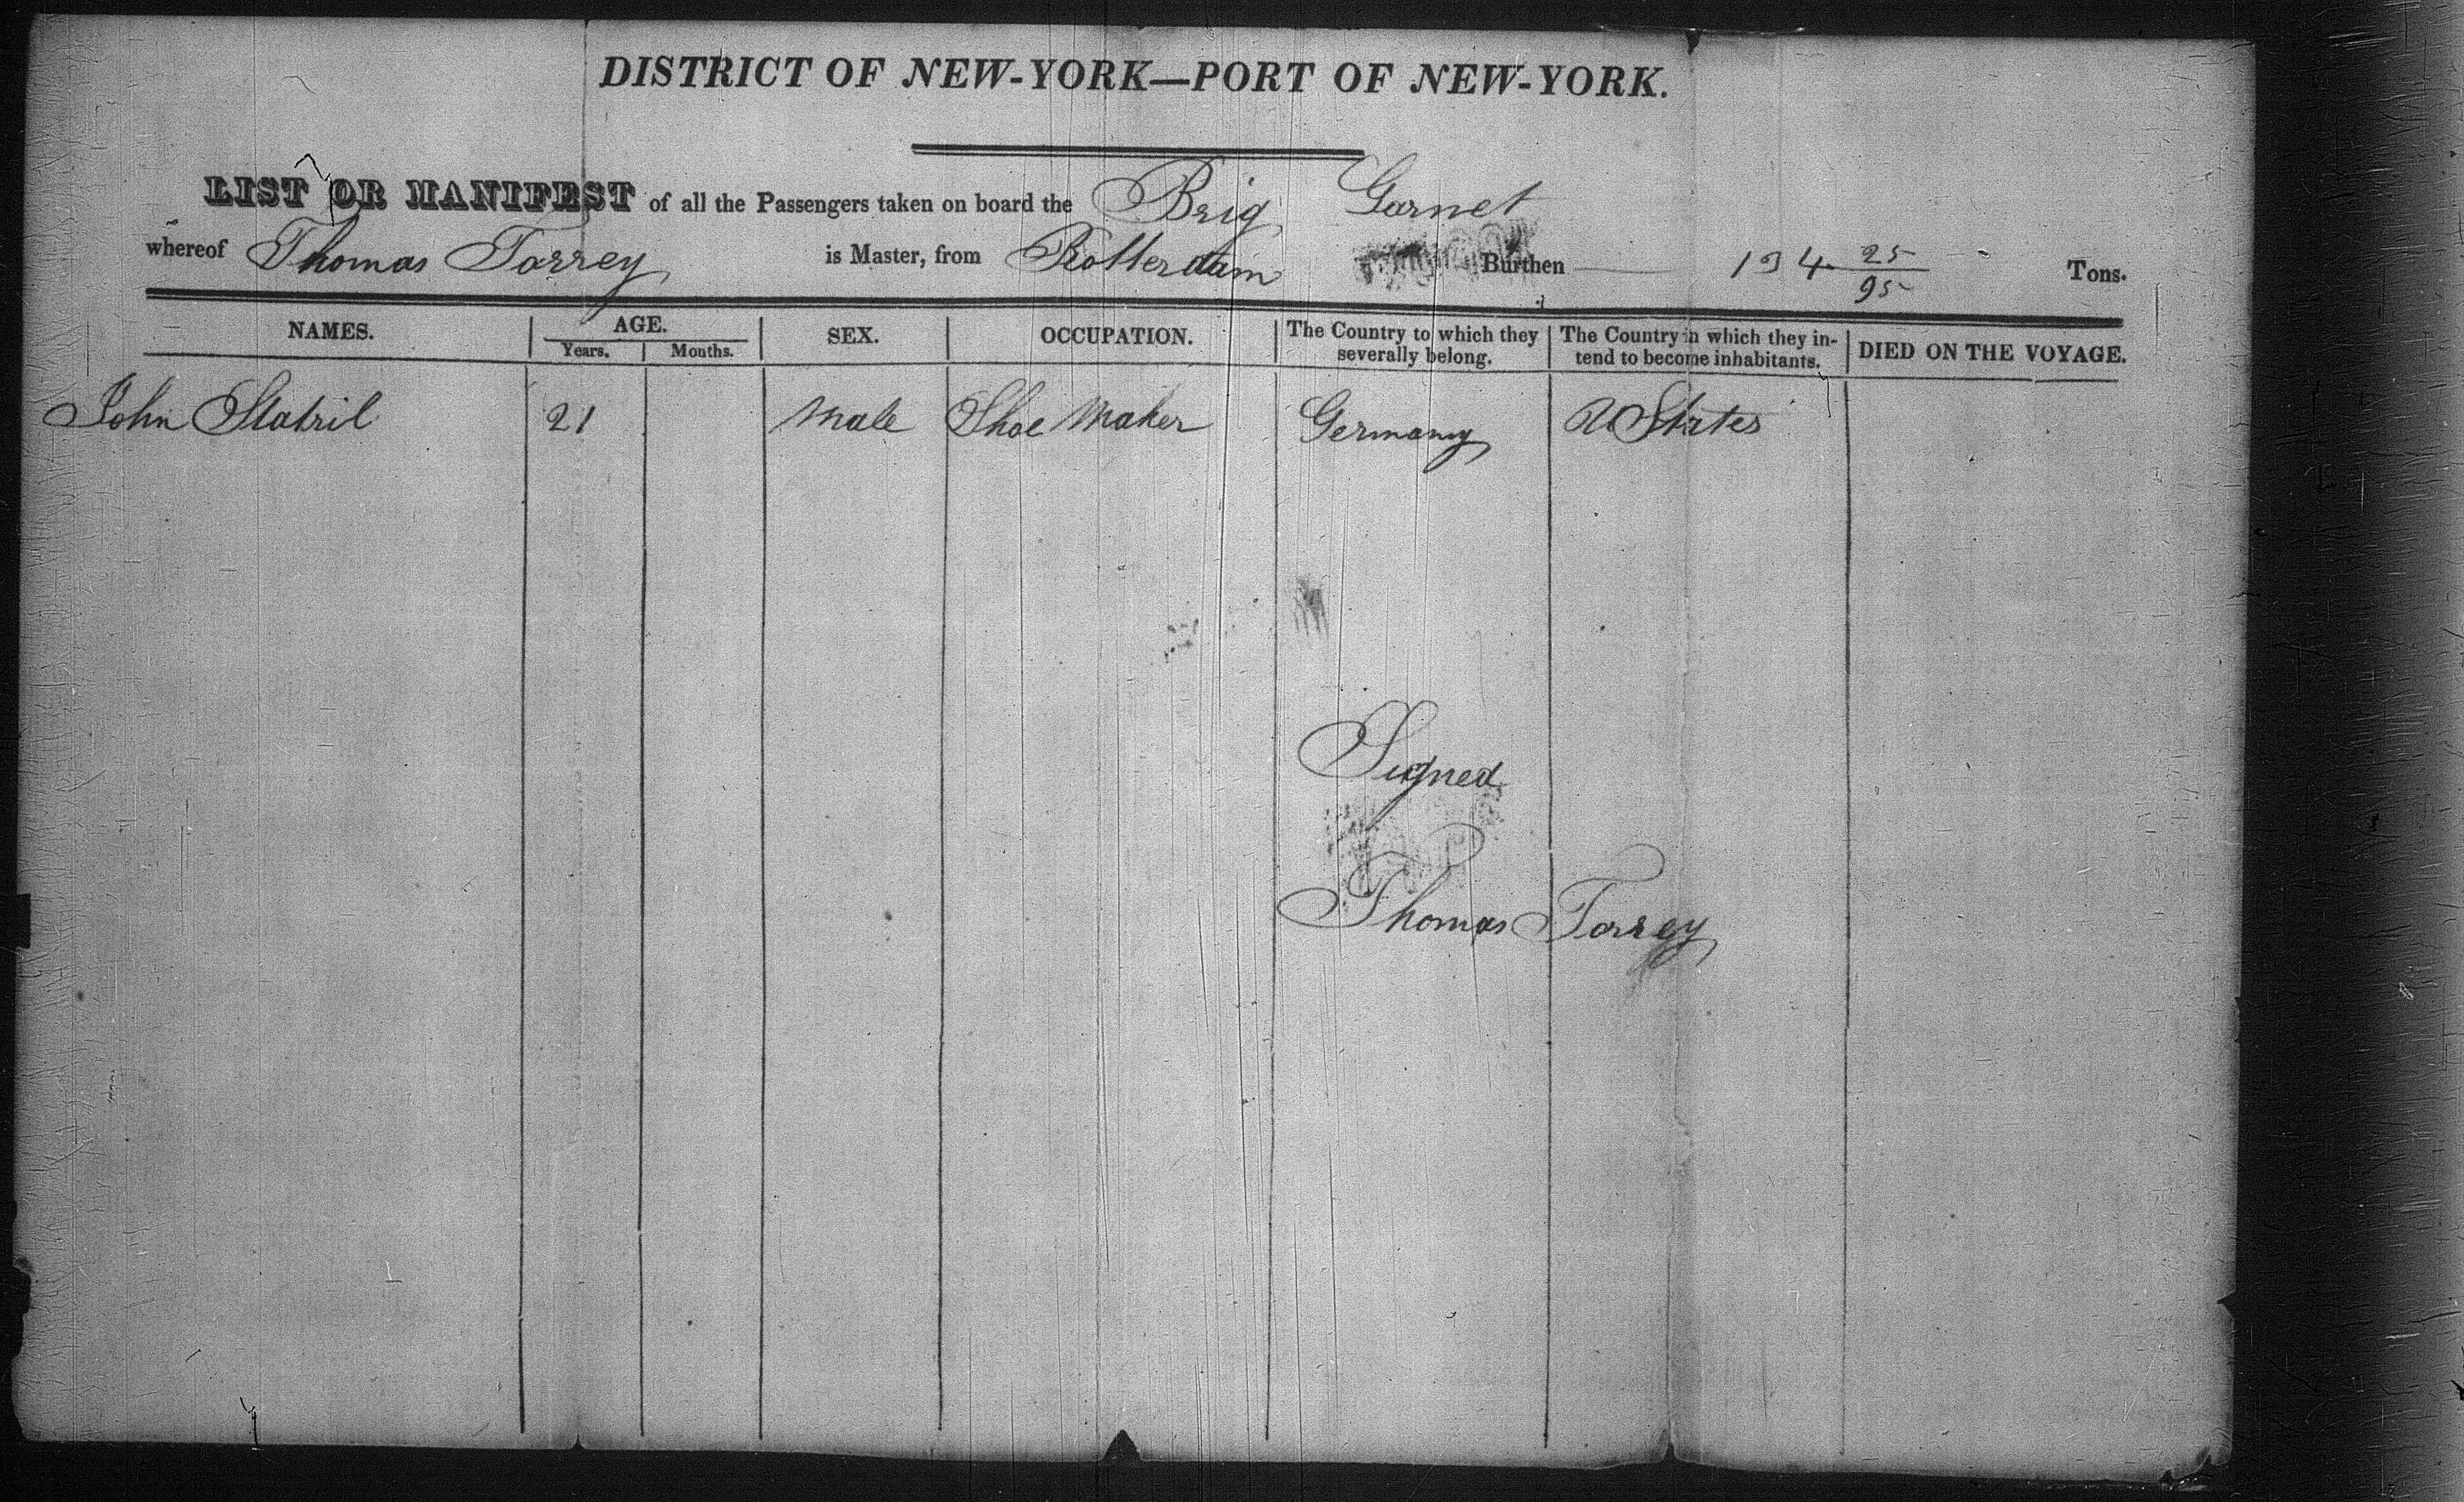 DISTRICT OF NEW-YORK—PORT OF NEW-YORK.
LIST OR MANIFEST of all the Passengers taken on board the Brig Garnet
whereof Thomas Torrey is Master, from Rotterdam Burthen 134 25/95 Tons.
NAMES. AGE. SEX. OCCUPATION. The Country to which they severally belong. The Country in which they in-tend to become inhabitants. DIED ON THE VOYAGE.
Years. Months.
John Statril 21 Male Shoe Maker Germany U States
Signed
Thomas Torrey